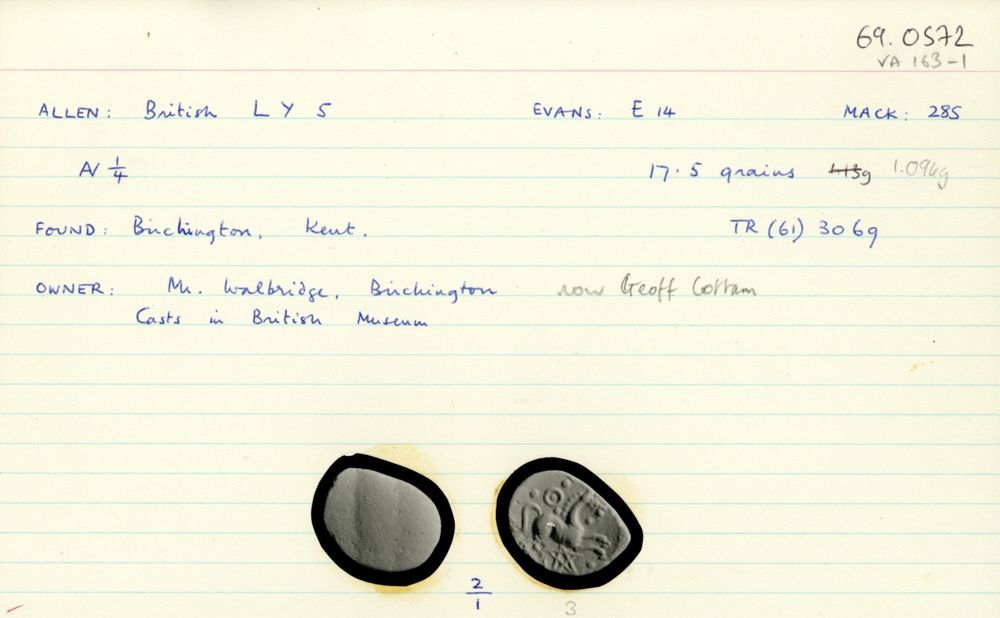 69.0572
VA 163-1
ALLEN: British L Y 5 EVANS: E 14 MACK: 285
AV 1/4 17.5 grains 1.13g 1.094g
FOUND: Birchington, Kent. TR (61) 3069
OWNER: Mr. Walbridge, Birchington now Geoff Cottam
Casts in British Museum
2/1
3